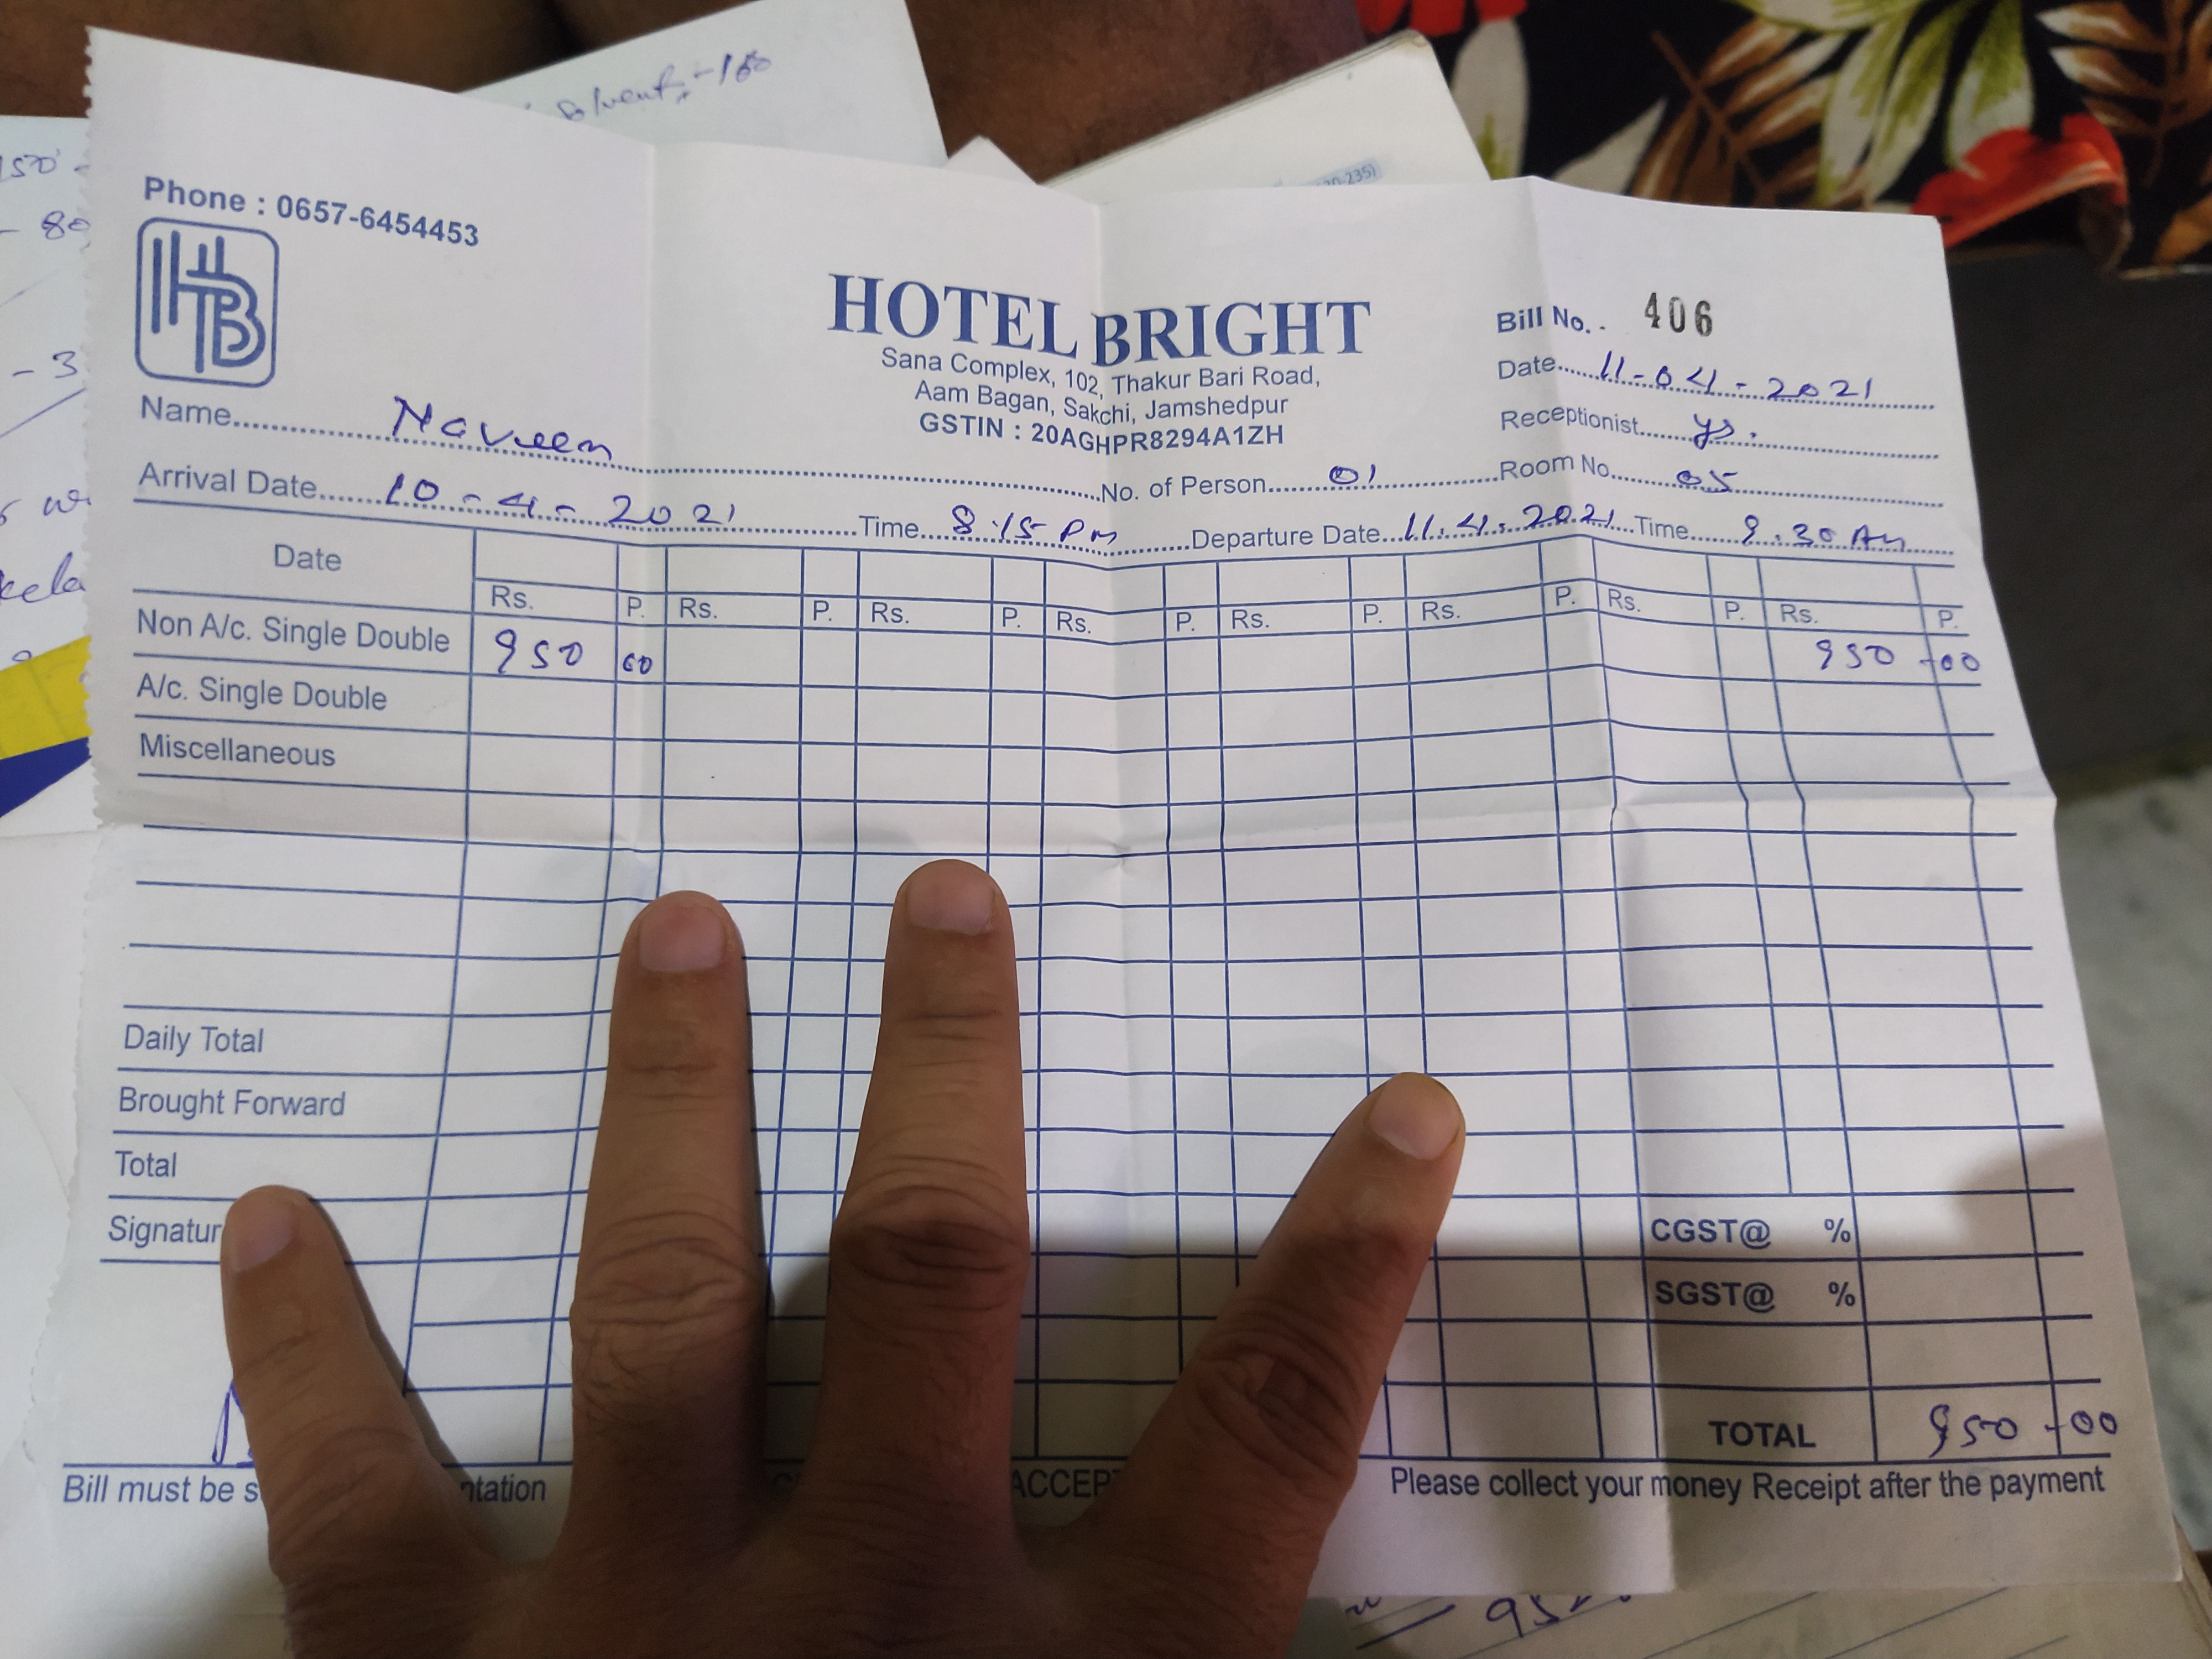 Solvent, -160
150
- 80
- 3
Phone : 0657-6454453
HB
HOTEL BRIGHT
Sana Complex, 102, Thakur Bari Road,
Aam Bagan, Sakchi, Jamshedpur
GSTIN : 20AGHPR8294A1ZH
Bill No. . 406
Date 11-04-2021
Receptionist ys.
Name Naveen No. of Person 01 Room No. 05
Arrival Date 10-4-2021 Time 8.15 Pm Departure Date 11.4.2021 Time 9.30 Am
Date
Rs. P. Rs. P. Rs. P. Rs. P. Rs. P. Rs. P. Rs. P. Rs. P.
Non A/c. Single Double 950 00 950 -00
A/c. Single Double
Miscellaneous
Daily Total
Brought Forward
Total
Signatur
CGST@ %
SGST@ %
TOTAL 950 -00
Bill must be s ntation ACCEP Please collect your money Receipt after the payment